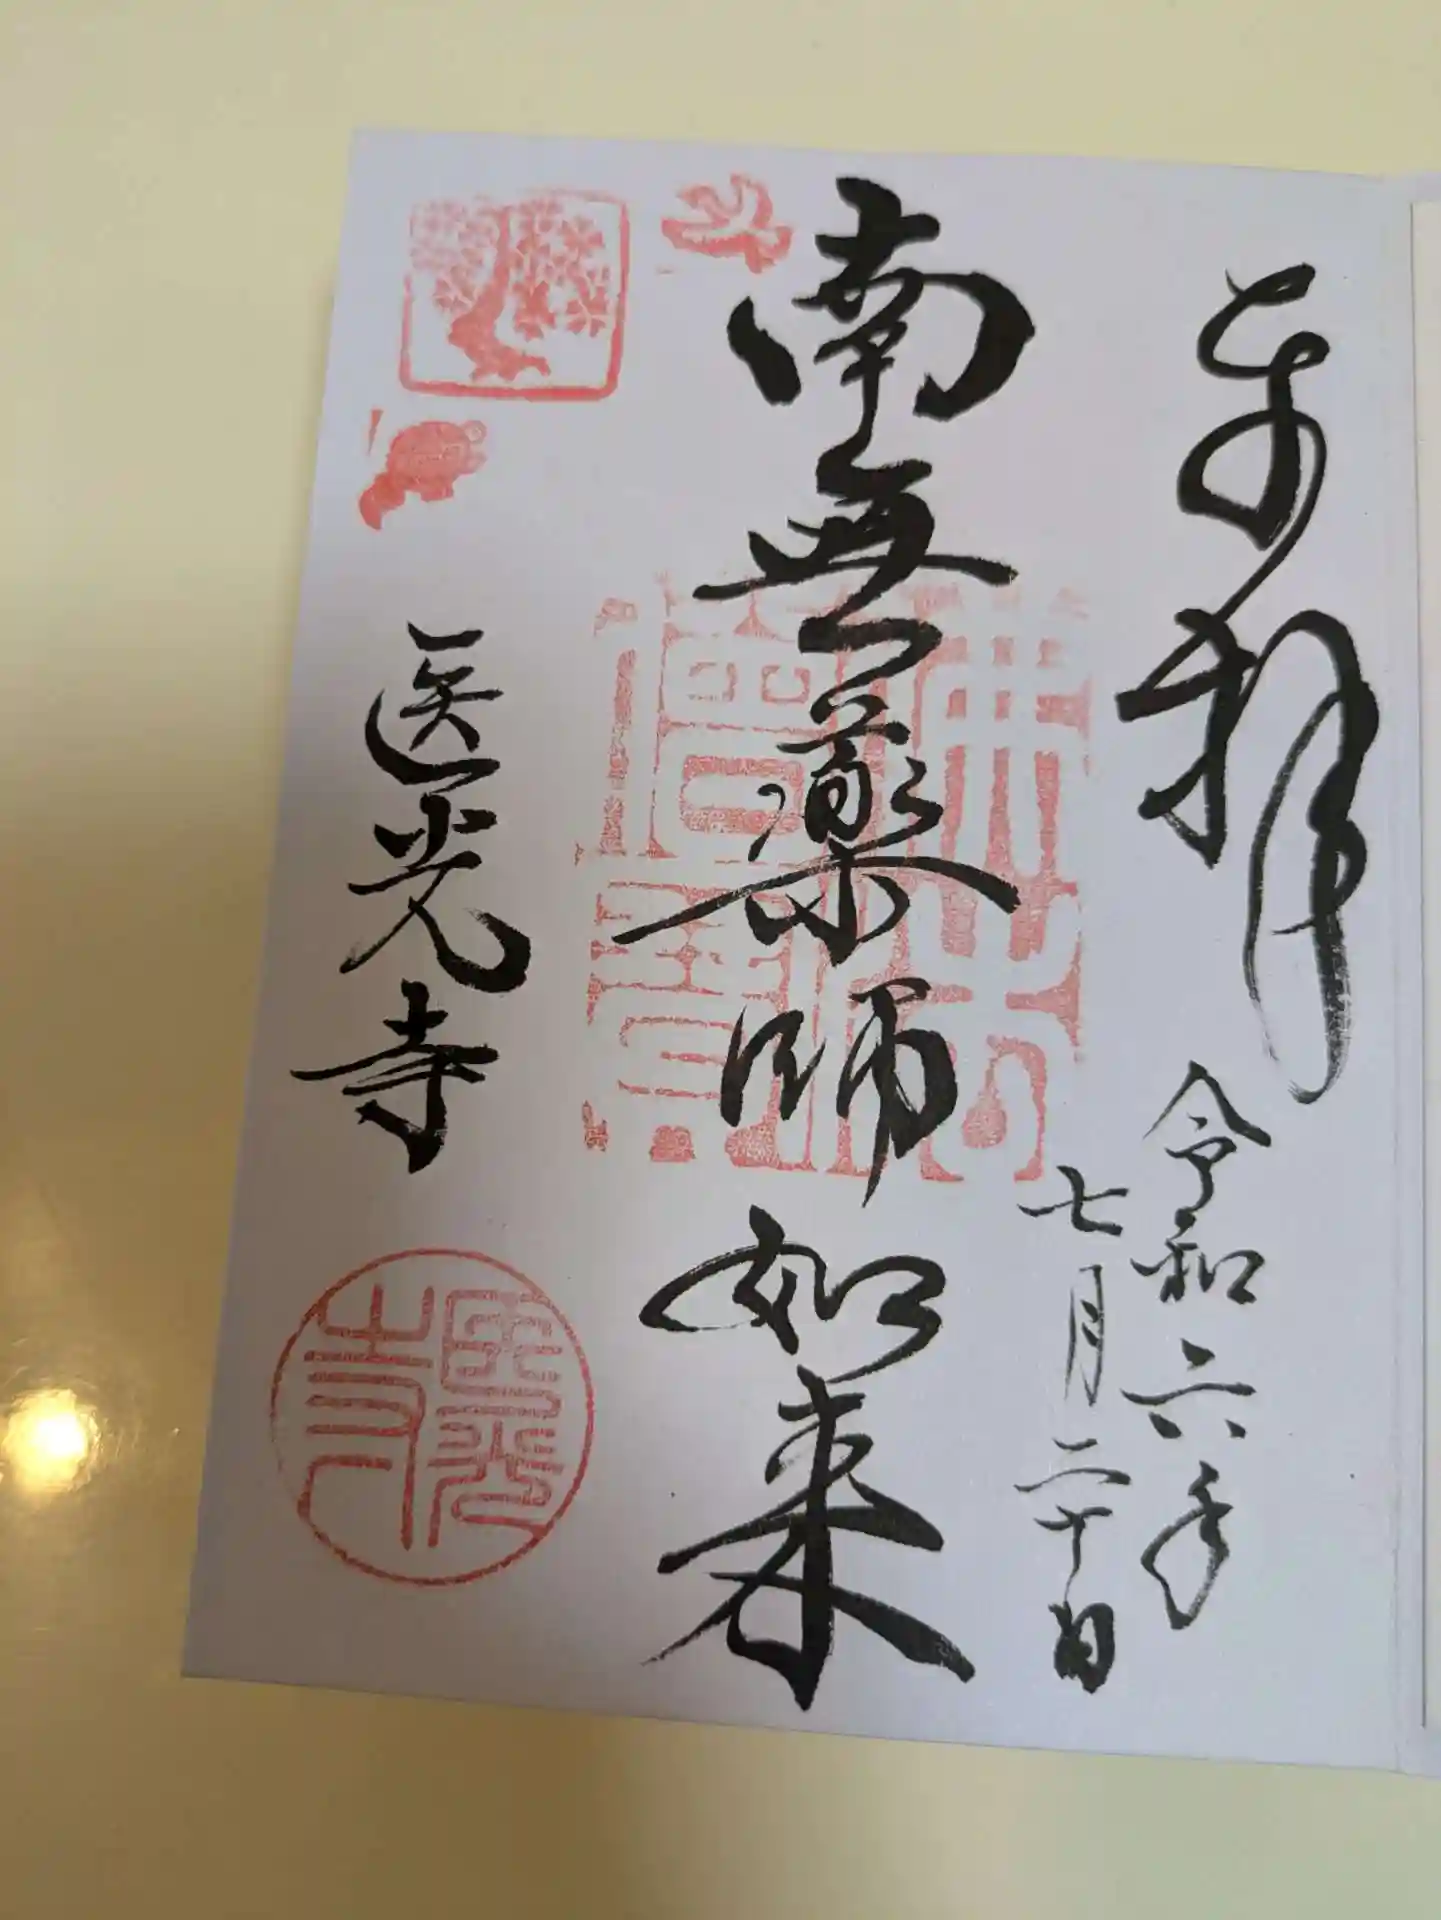 奉拝
令和六年
七月二十日
南無薬師如来
佛法僧寶
医光寺
醫光寺